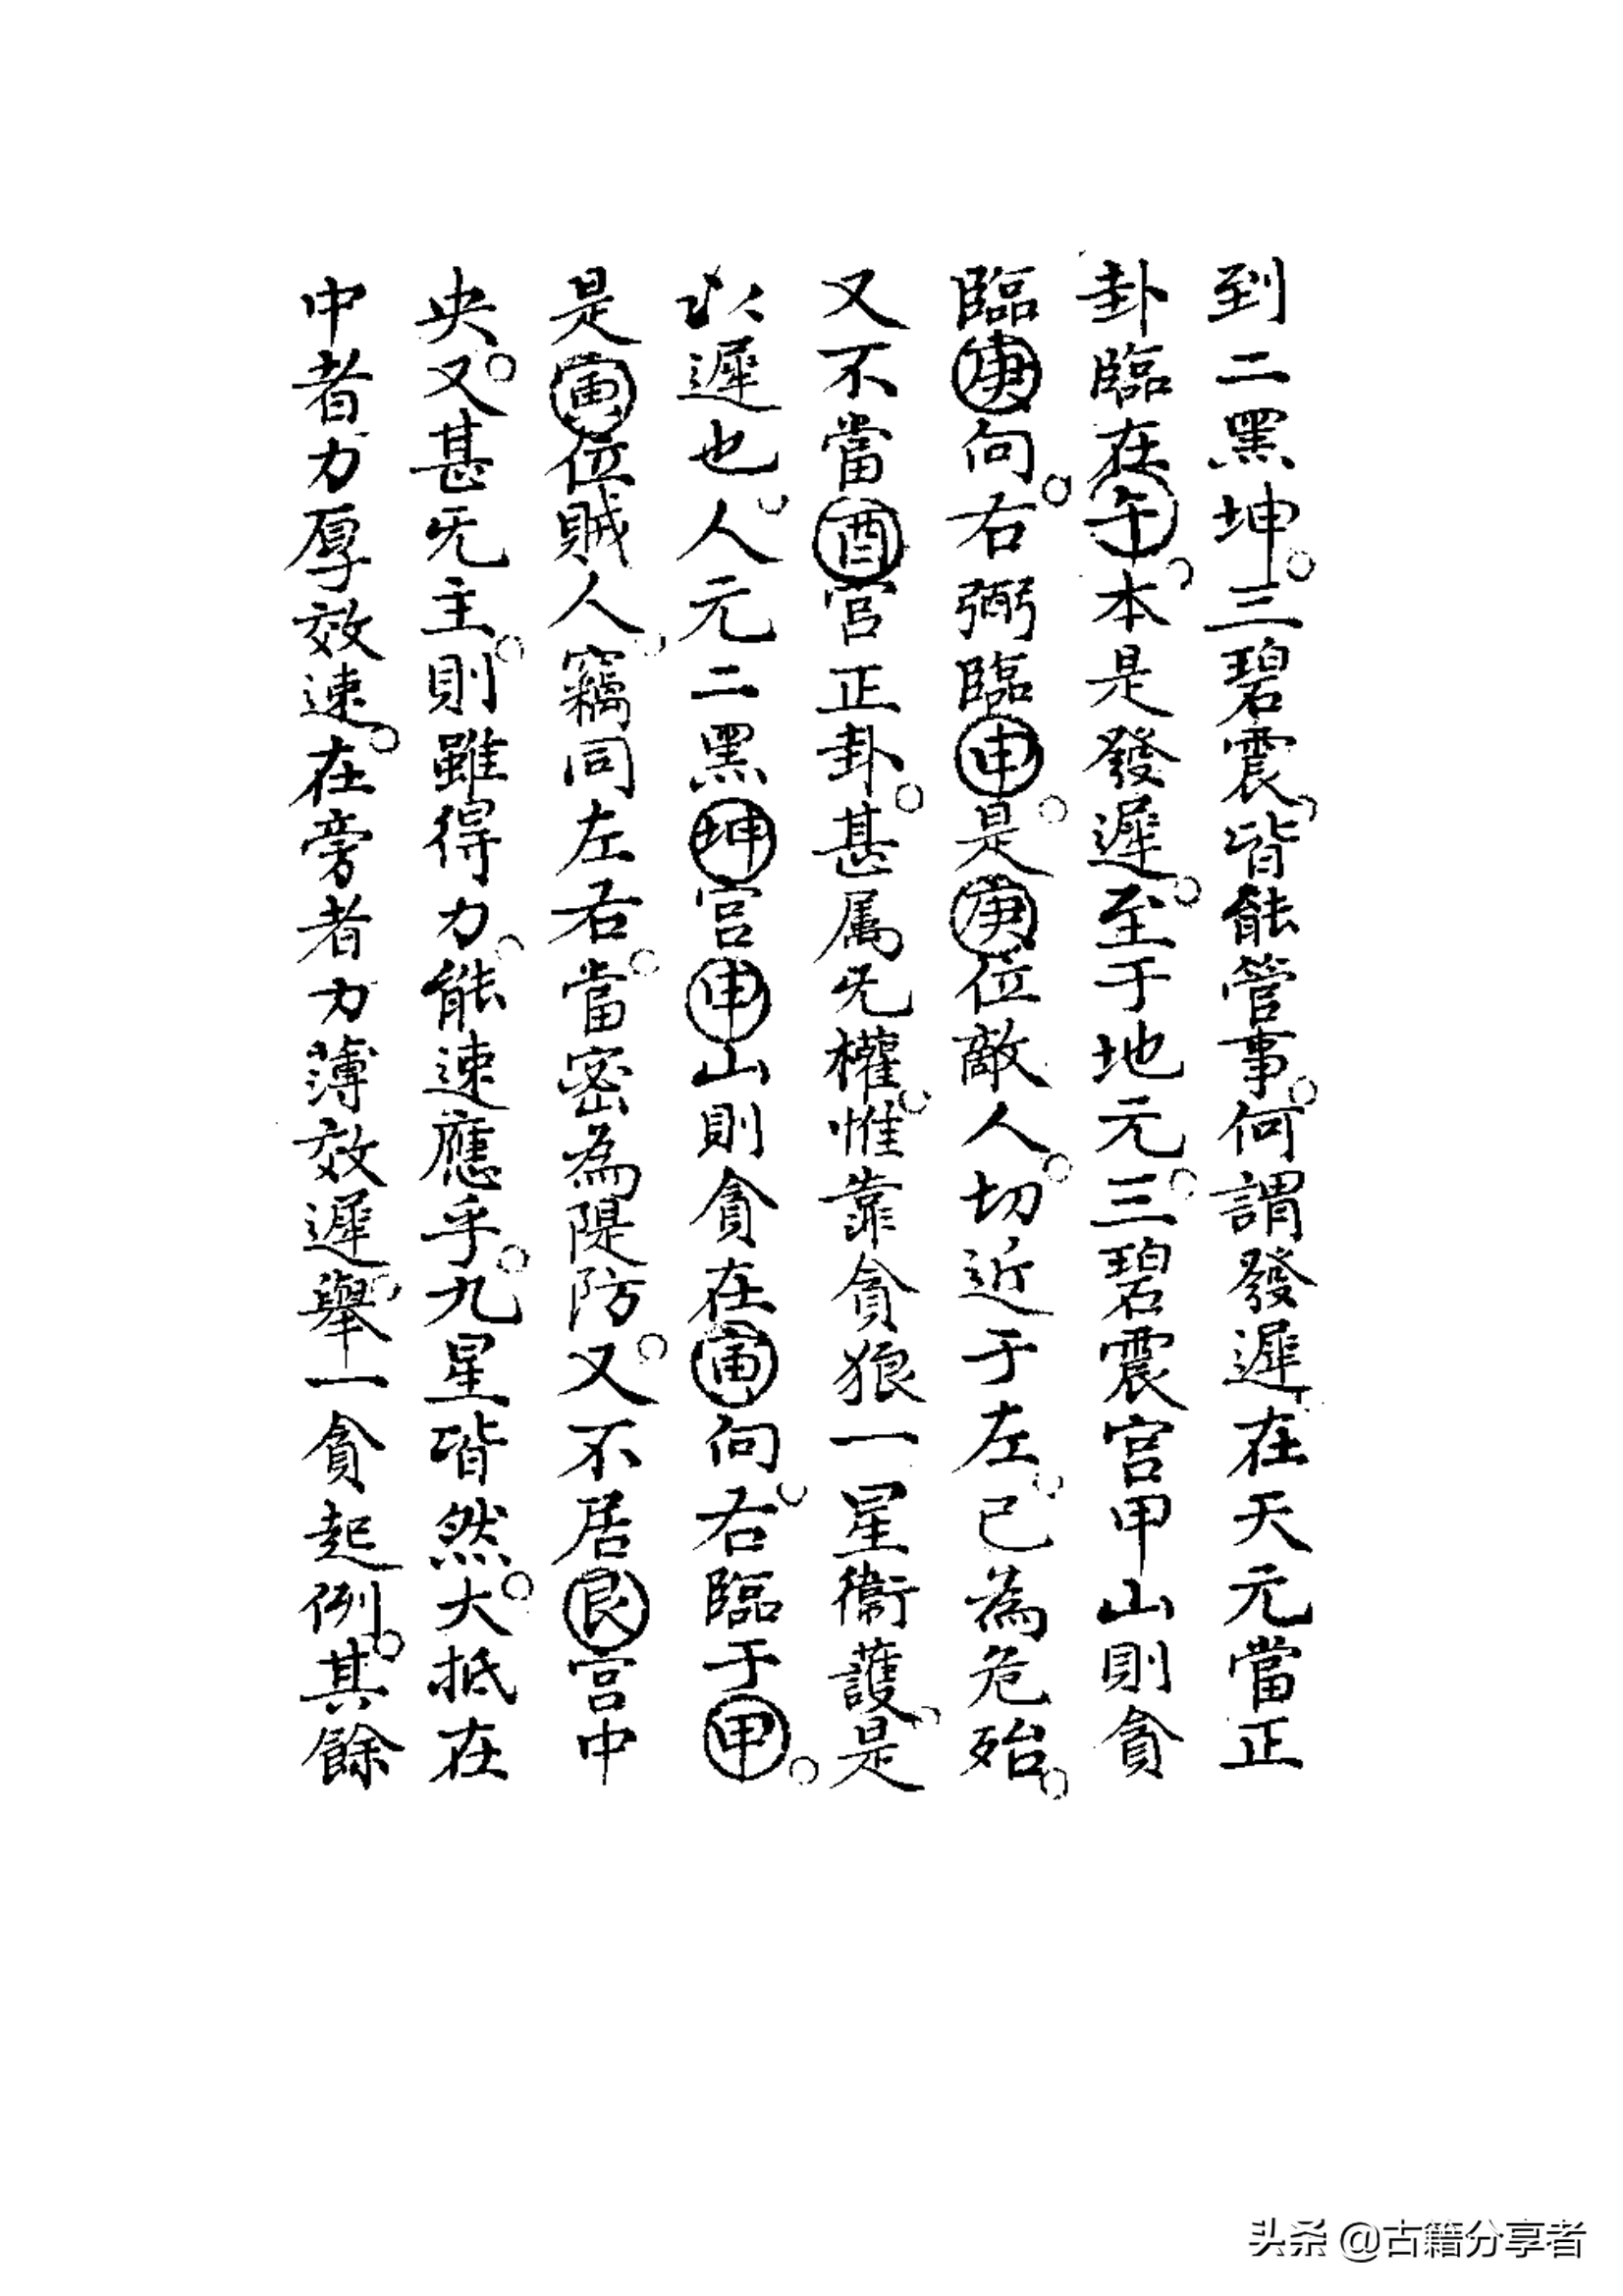 到二黑坤。三碧震。皆能管事。何謂發遲。在天元當正
卦臨在午。本是發遲。至于地元。三碧震宮甲山則貪
臨庚向。右弼臨申。是庚位敵人。切近于左。已為危殆。
又不當酉宮正卦。甚属旡權。惟靠貪狼一星衛護。是
以遲也。人元二黑坤宮申山則貪在寅向。右臨于甲。
是寅位賊人。竊同左右。當密為隄防。又不居艮宮中
央。又甚旡主。則雖得力。能速應乎。九星皆然。大抵在
中者力厚效速。在旁者力薄效遲。舉一貪起例。其餘
头条 @古籍分享者